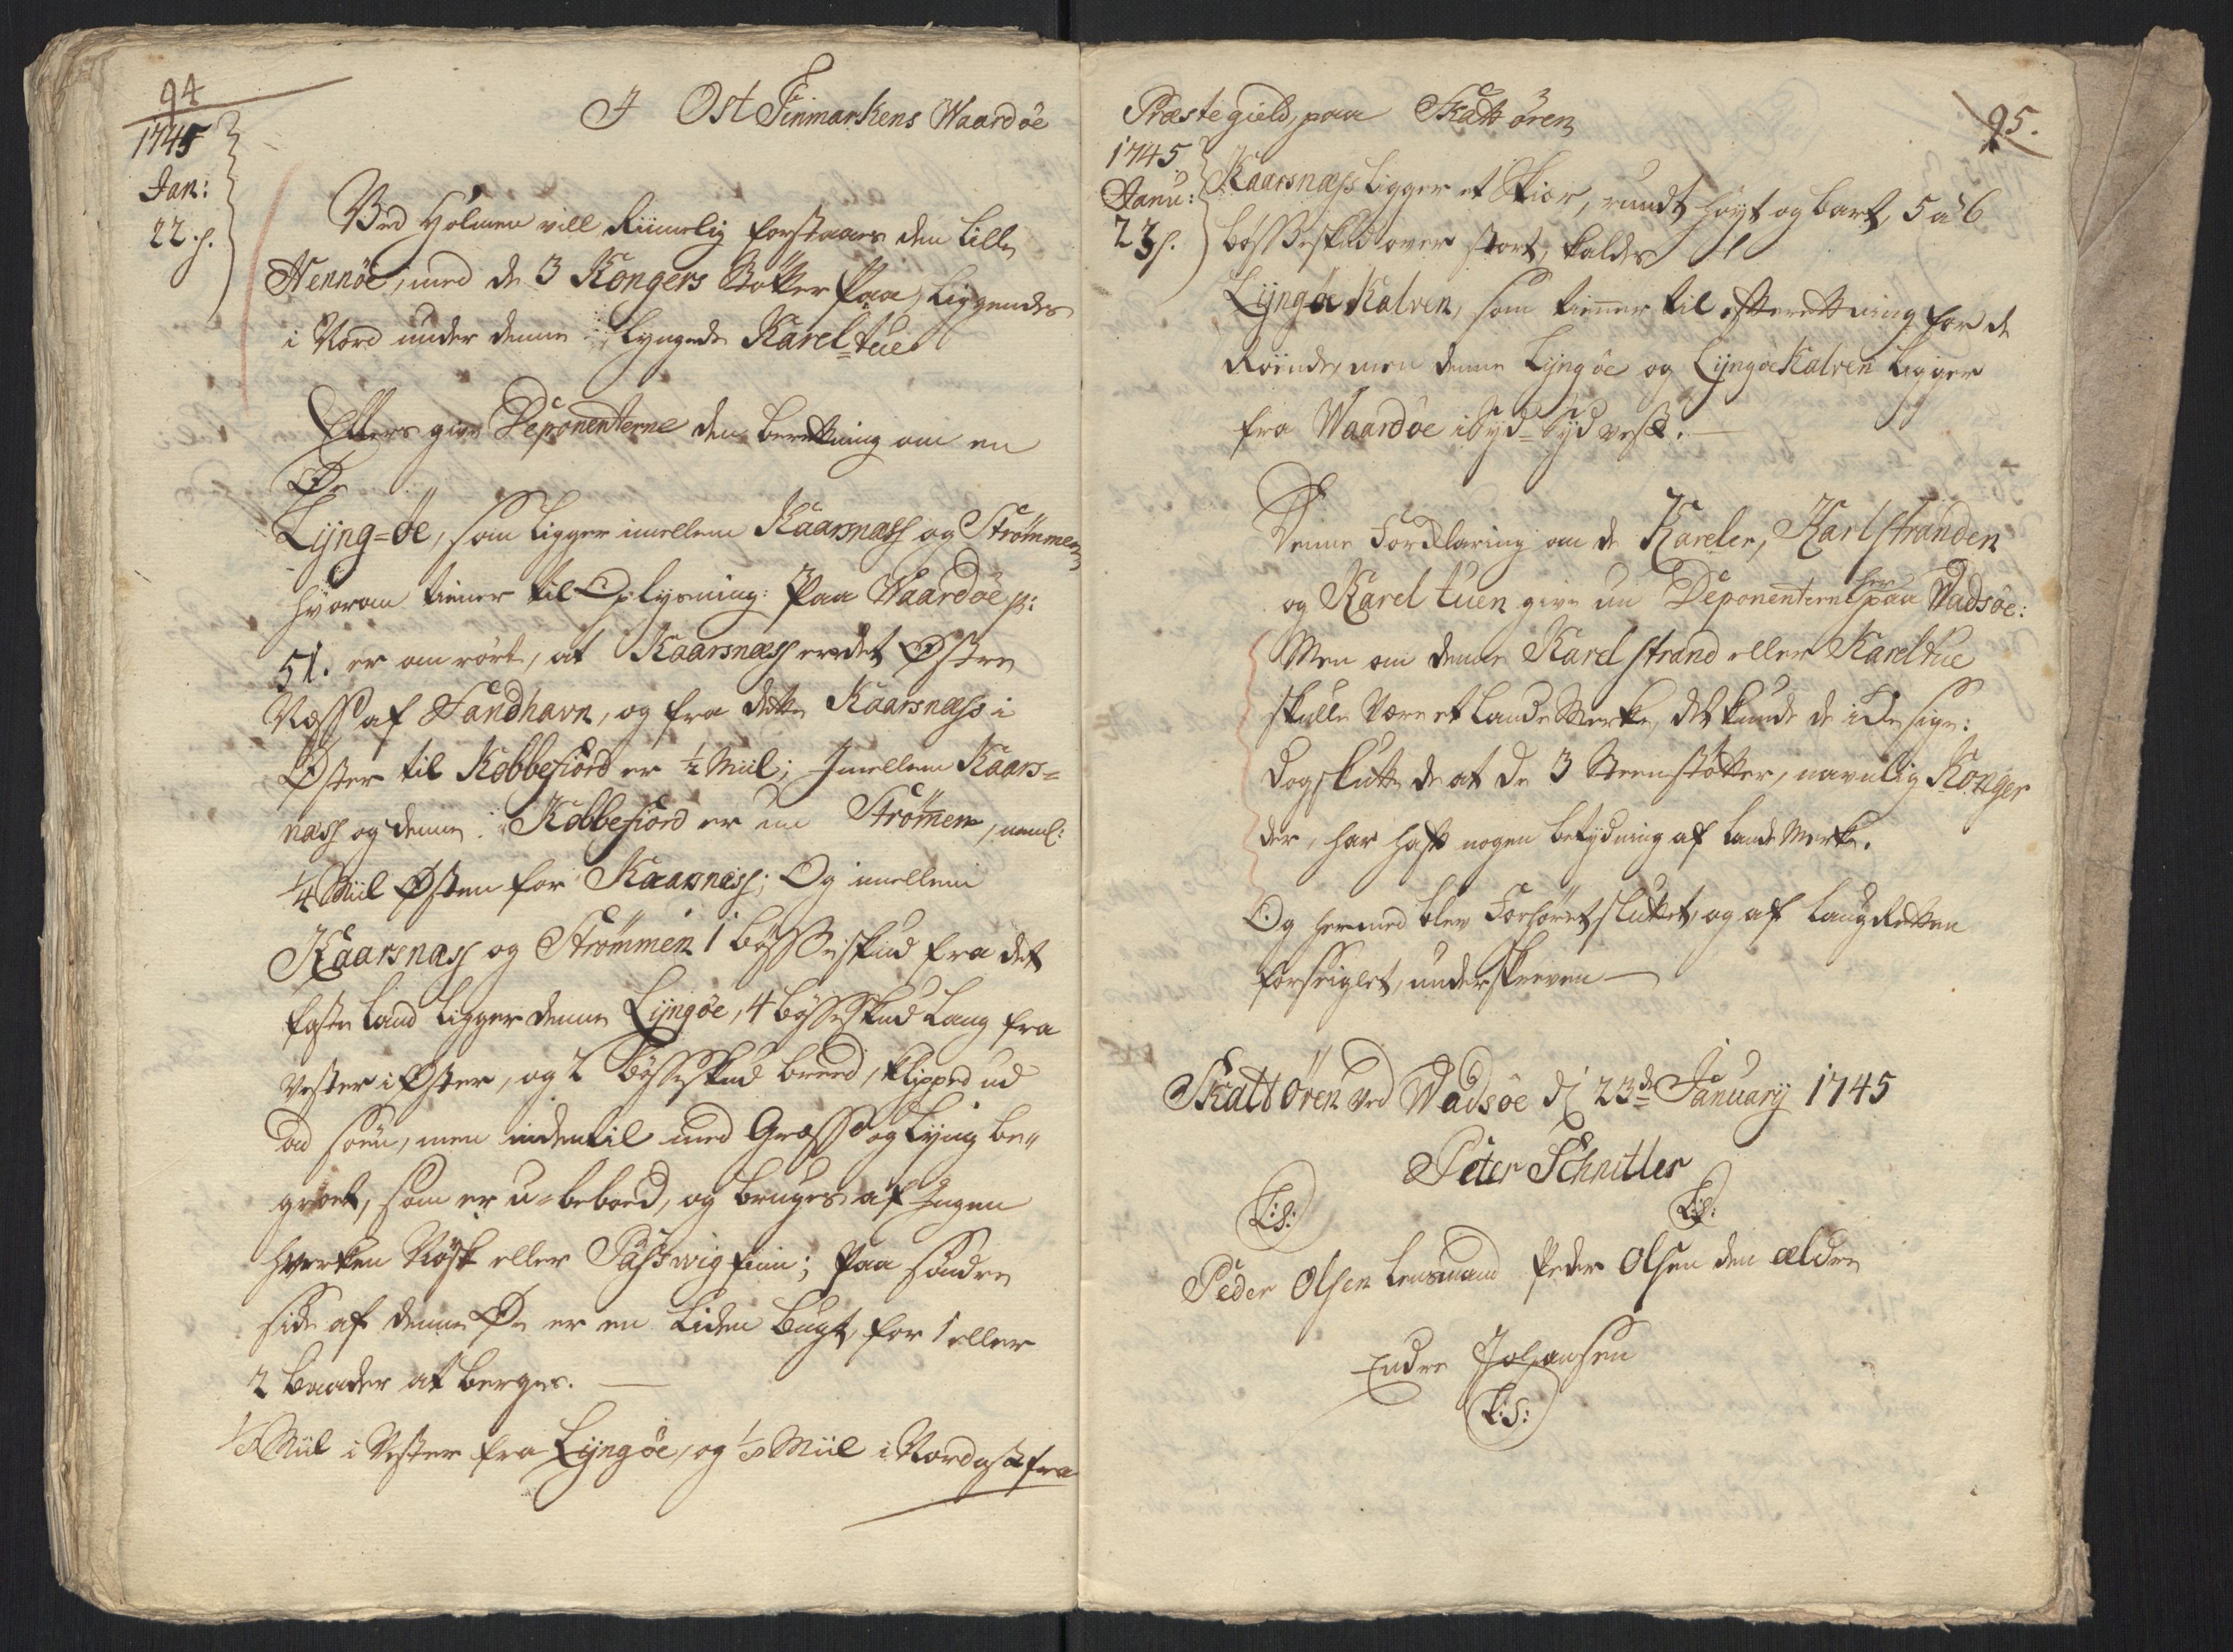 94
1745
Jan:
22. s.
I Ost Finmarkens Waardöe
Ved Holmen vill Riimelig forstaaes den Lille
Hennöe, med de 3 Kongers Støtter paa, Liggendes
i Nord under denne Lyngede Karel-tue
Ellers give Deponenterne den beretning om en
Øe
Lijng-öe, som ligger imellem Kaarsnæss og Strömmen
hvorom tiener til Oplysning: Paa Waardöe p:
51. er om rört, at Kaarsnæss er det Østre
Næss af Sandhavn, og fra dette Kaarsnæss i
Øster til Kobbefiord er ½ Miil; Imellem Kaars-
næss og denne Kobbefiord er en Strömmen, neml:
¼ Miil Østen for Kaarsnæss; Og imellem
Kaarsnæss og Strömmen 1 bösse skud fra det
faste Land Ligger denne Lijngöe, 4 bösseskud Lang fra
Vester i Øster, og 2 bösseskud breed, klipped ud
ad söen, men indentil med Græss og Lyng be-
groet, som er u-beboed, og bruges af Ingen
hverken Norsk eller Passvig finn; Paa söndre
side af denne Øe er en Liden bugt, for 1 eller
2 baader at berges.
⅛ Miil i Vester fra Lijngöe, og ⅛ Miil i Nordost fra
Præstegield, paa Skattören
95.
1745
Janu:
23 s.
Kaarsnæss Ligger et Skiær, rundt, höyt og bart, 5 à 6
bösseskud over stort, kaldes
Lijngöe Kalven, som tiener til efterretning for de
Roende, men denne Lijngöe og Lijngöe Kalven Ligger
fra Waardöe i Syd-Sydvest.
Denne Forklaring om de Kareler, Karlstranden
og Karel tuen give nu Deponenterne her paa Wadsöe:
Men om denne Karelstrand eller Kareltue
skulle være et Lande Merke, det kunde de icke sige:
dog slutte de at de 3 Steenstötter, navnlig Konger
der, har haft nogen betydning af Lande Merke.
Og hermed blev Forhöret sluttet, og af Laug Retten
forseiglet, underskreven
Skattören ved Wadsöe d 23de January 1745
Peter Schnitler
L:S: L:S:
Peder Olsen Lensmand Peder Olsen den ældre
Endre Johansen
L:S: